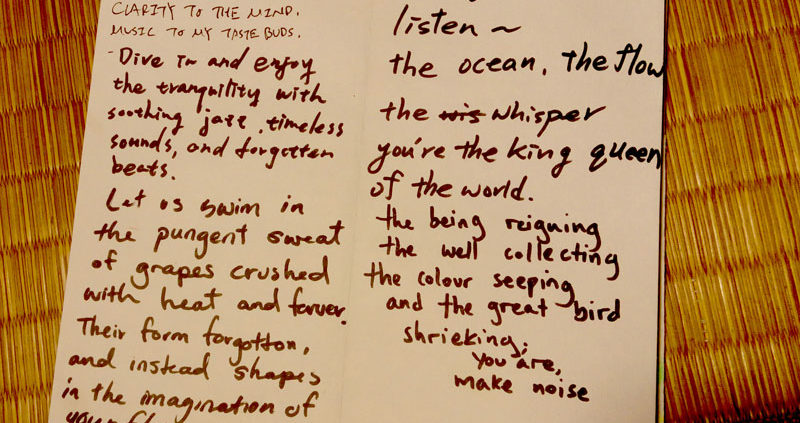 CLARITY TO THE MIND.
MUSIC TO MY TASTE BUDS.
Dive in and enjoy
the tranquility with
soothing jazz, timeless
sounds, and forgotten
beats.
Let us swim in
the pungent sweat
of grapes crushed
with heat and
Their form forgotton,
and instead shapes
in the imagination of
listen ~
the ocean, the flow
the whisper
you're the king queen
of the world.
the being reigning
the well collecting
the colour seeping
and the great bird
shrieking;
you are,
make noise